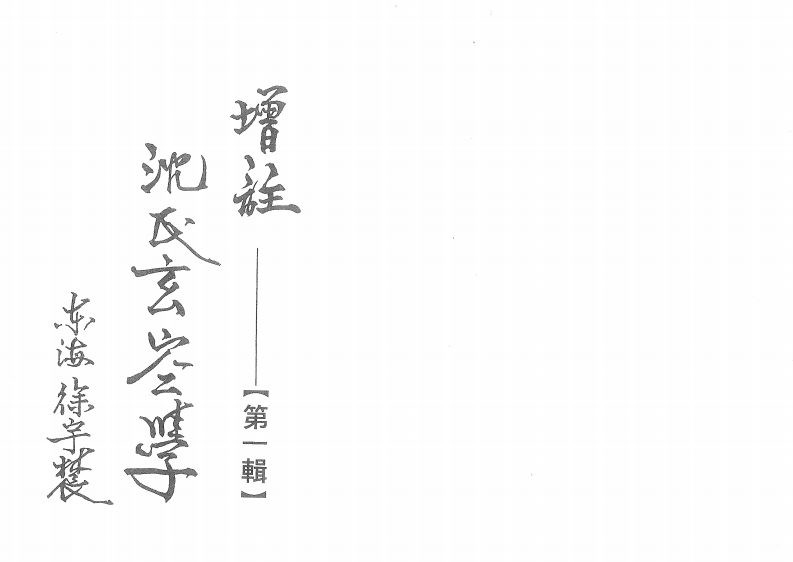 增註——【第一輯】
沈氏玄空學
东海 徐宇辳